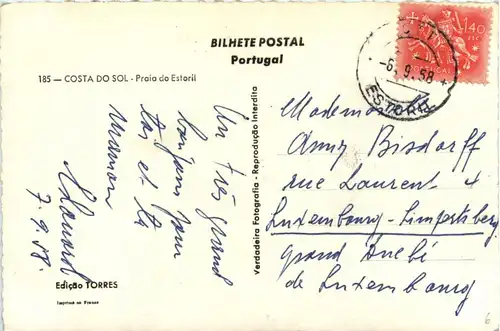 BILHETE POSTAL
Portugal
185 — COSTA DO SOL - Praia do Estoril
Un très grand
bonjour pour
toi et ta
maman
7.9.58.
Edição TORRES
Imprimé en France
Verdadeira Fotografia - Reprodução Interdita
1$40
PORTUGAL
-6. 9. 58
ESTORIL
Mademoiselle
Anny Bisdorff
rue Laurent
Luxembourg-Limpertsberg
Grand Duché
de Luxembourg
6